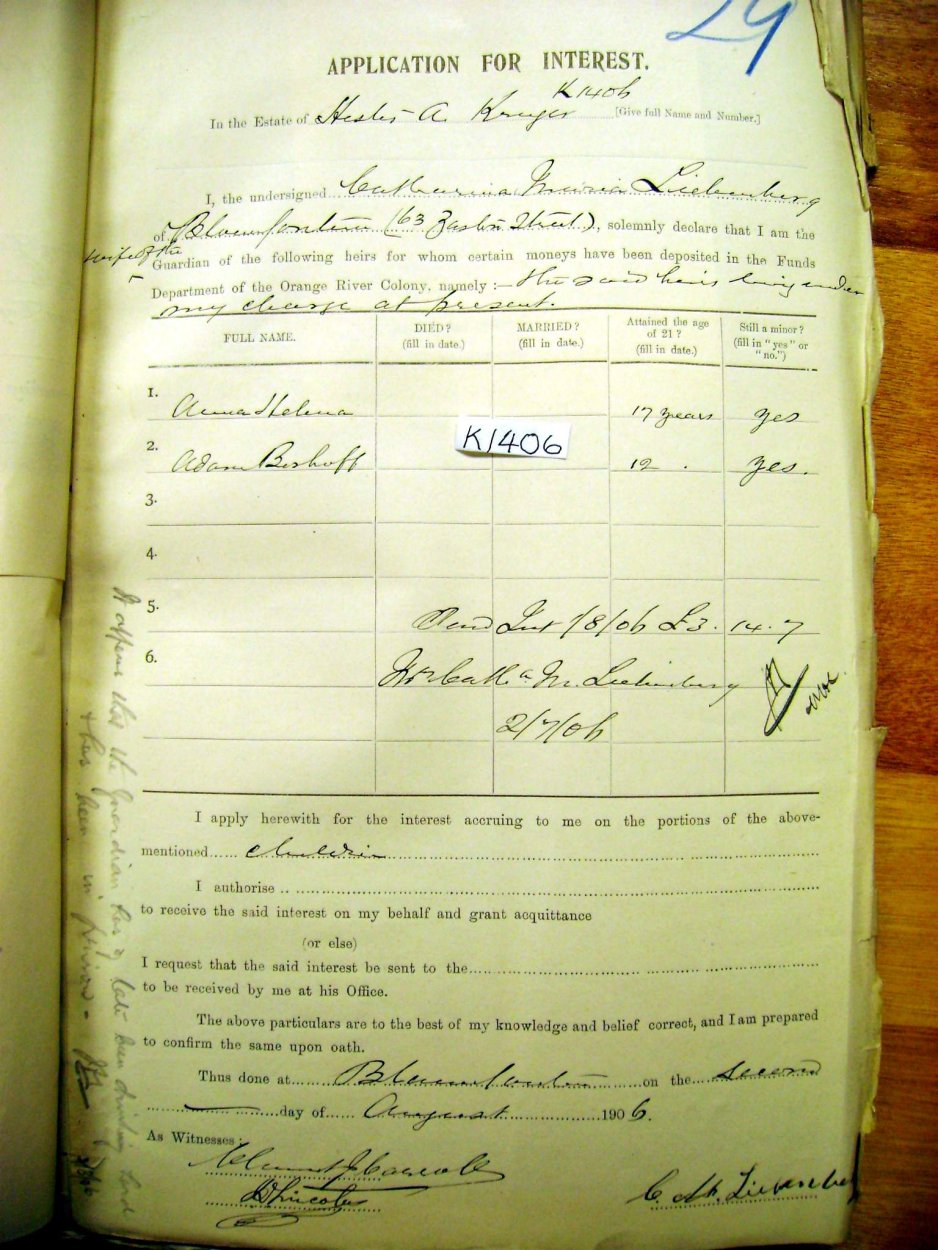 29
APPLICATION FOR INTEREST.
K1406
In the Estate of Hester A. Kruger [Give full Name and Number.]
I, the undersigned Catharina Maria Liebenberg
of Bloemfontein (63 Zastron Street), solemnly declare that I am the
wife of the
Guardian of the following heirs for whom certain moneys have been deposited in the Funds
Department of the Orange River Colony, namely :— the said heirs being under
my charge at present.
FULL NAME. DIED? (fill in date.) MARRIED? (fill in date.) Attained the age of 21? (fill in date.) Still a minor? (fill in "yes" or "no.")
1. Anna Helena 17 years yes
K1406
2. Adam Boshoff 12 . yes.
3.
4.
5. Int 1/8/06 £3. 14. 7
6. Catha M. Liebenberg
2/7/06
I apply herewith for the interest accruing to me on the portions of the above-
mentioned children
I authorise
to receive the said interest on my behalf and grant acquittance
(or else)
I request that the said interest be sent to the
to be received by me at his Office.
The above particulars are to the best of my knowledge and belief correct, and I am prepared
to confirm the same upon oath.
Thus done at Bloemfontein on the second
day of August 1906.
As Witnesses:
C. M. Liebenber
It appears that the Guardian has of late been drinking hard
& has been in prison.